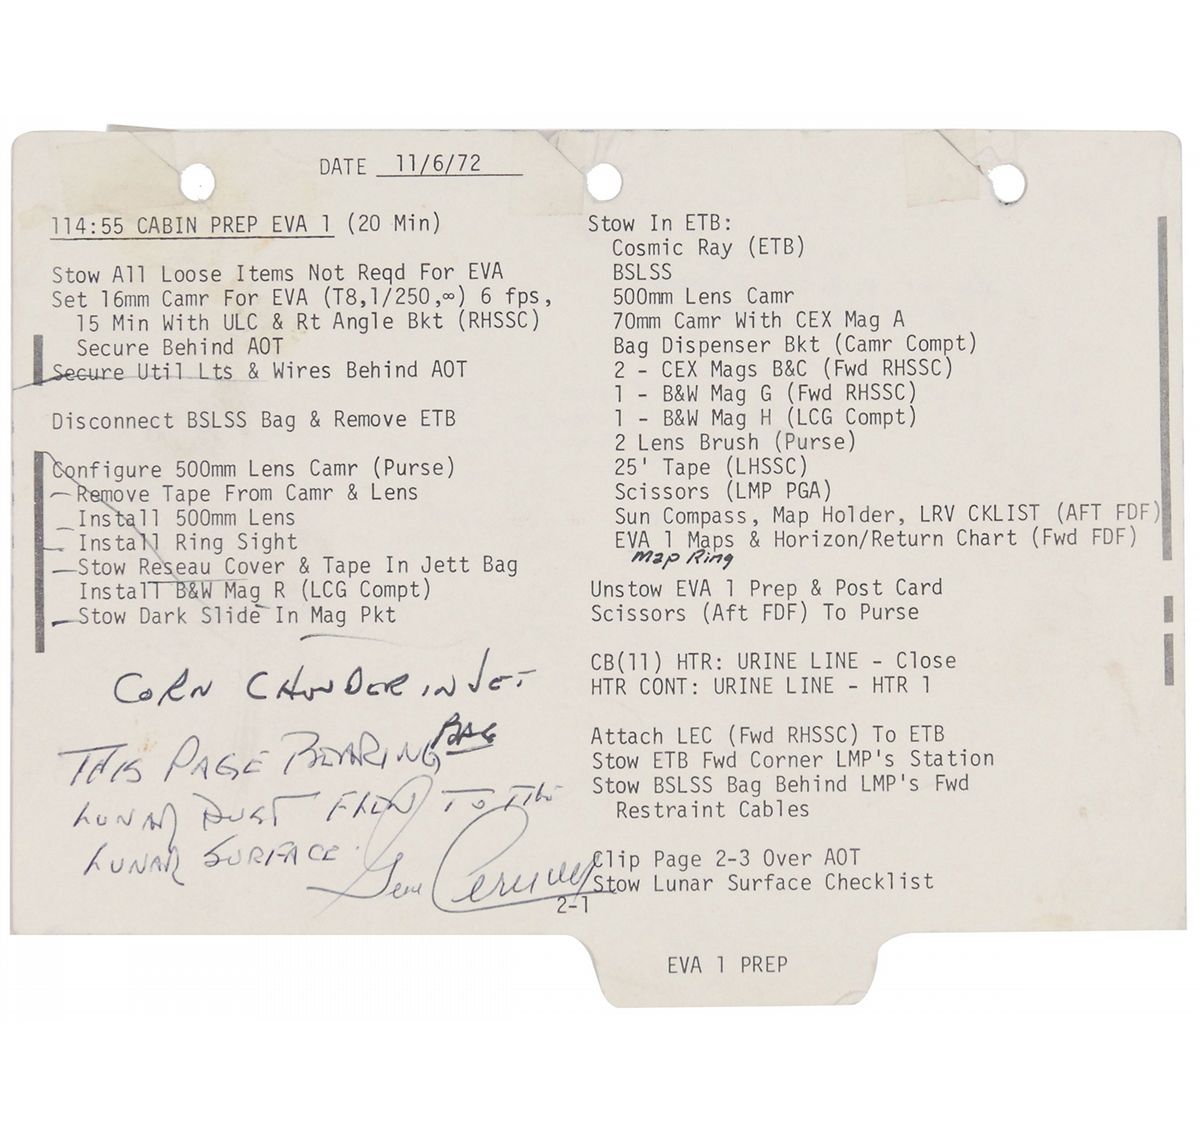 DATE 11/6/72
114:55 CABIN PREP EVA 1 (20 Min)
Stow All Loose Items Not Reqd For EVA
Set 16mm Camr For EVA (T8,1/250,∞) 6 fps,
15 Min With ULC & Rt Angle Bkt (RHSSC)
Secure Behind AOT
Secure Util Lts & Wires Behind AOT
Disconnect BSLSS Bag & Remove ETB
Configure 500mm Lens Camr (Purse)
Remove Tape From Camr & Lens
Install 500mm Lens
Install Ring Sight
Stow Reseau Cover & Tape In Jett Bag
Install B&W Mag R (LCG Compt)
Stow Dark Slide In Mag Pkt
CORN CHOWDER IN JET
BAG
THIS PAGE BEARING
LUNAR DUST FLEW TO THE
LUNAR SURFACE.
Gene Cernan
Stow In ETB:
Cosmic Ray (ETB)
BSLSS
500mm Lens Camr
70mm Camr With CEX Mag A
Bag Dispenser Bkt (Camr Compt)
2 - CEX Mags B&C (Fwd RHSSC)
1 - B&W Mag G (Fwd RHSSC)
1 - B&W Mag H (LCG Compt)
2 Lens Brush (Purse)
25' Tape (LHSSC)
Scissors (LMP PGA)
Sun Compass, Map Holder, LRV CKLIST (AFT FDF)
EVA 1 Maps & Horizon/Return Chart (Fwd FDF)
Map Ring
Unstow EVA 1 Prep & Post Card
Scissors (Aft FDF) To Purse
CB(11) HTR: URINE LINE - Close
HTR CONT: URINE LINE - HTR 1
Attach LEC (Fwd RHSSC) To ETB
Stow ETB Fwd Corner LMP's Station
Stow BSLSS Bag Behind LMP's Fwd
Restraint Cables
Clip Page 2-3 Over AOT
Stow Lunar Surface Checklist
2-1
EVA 1 PREP